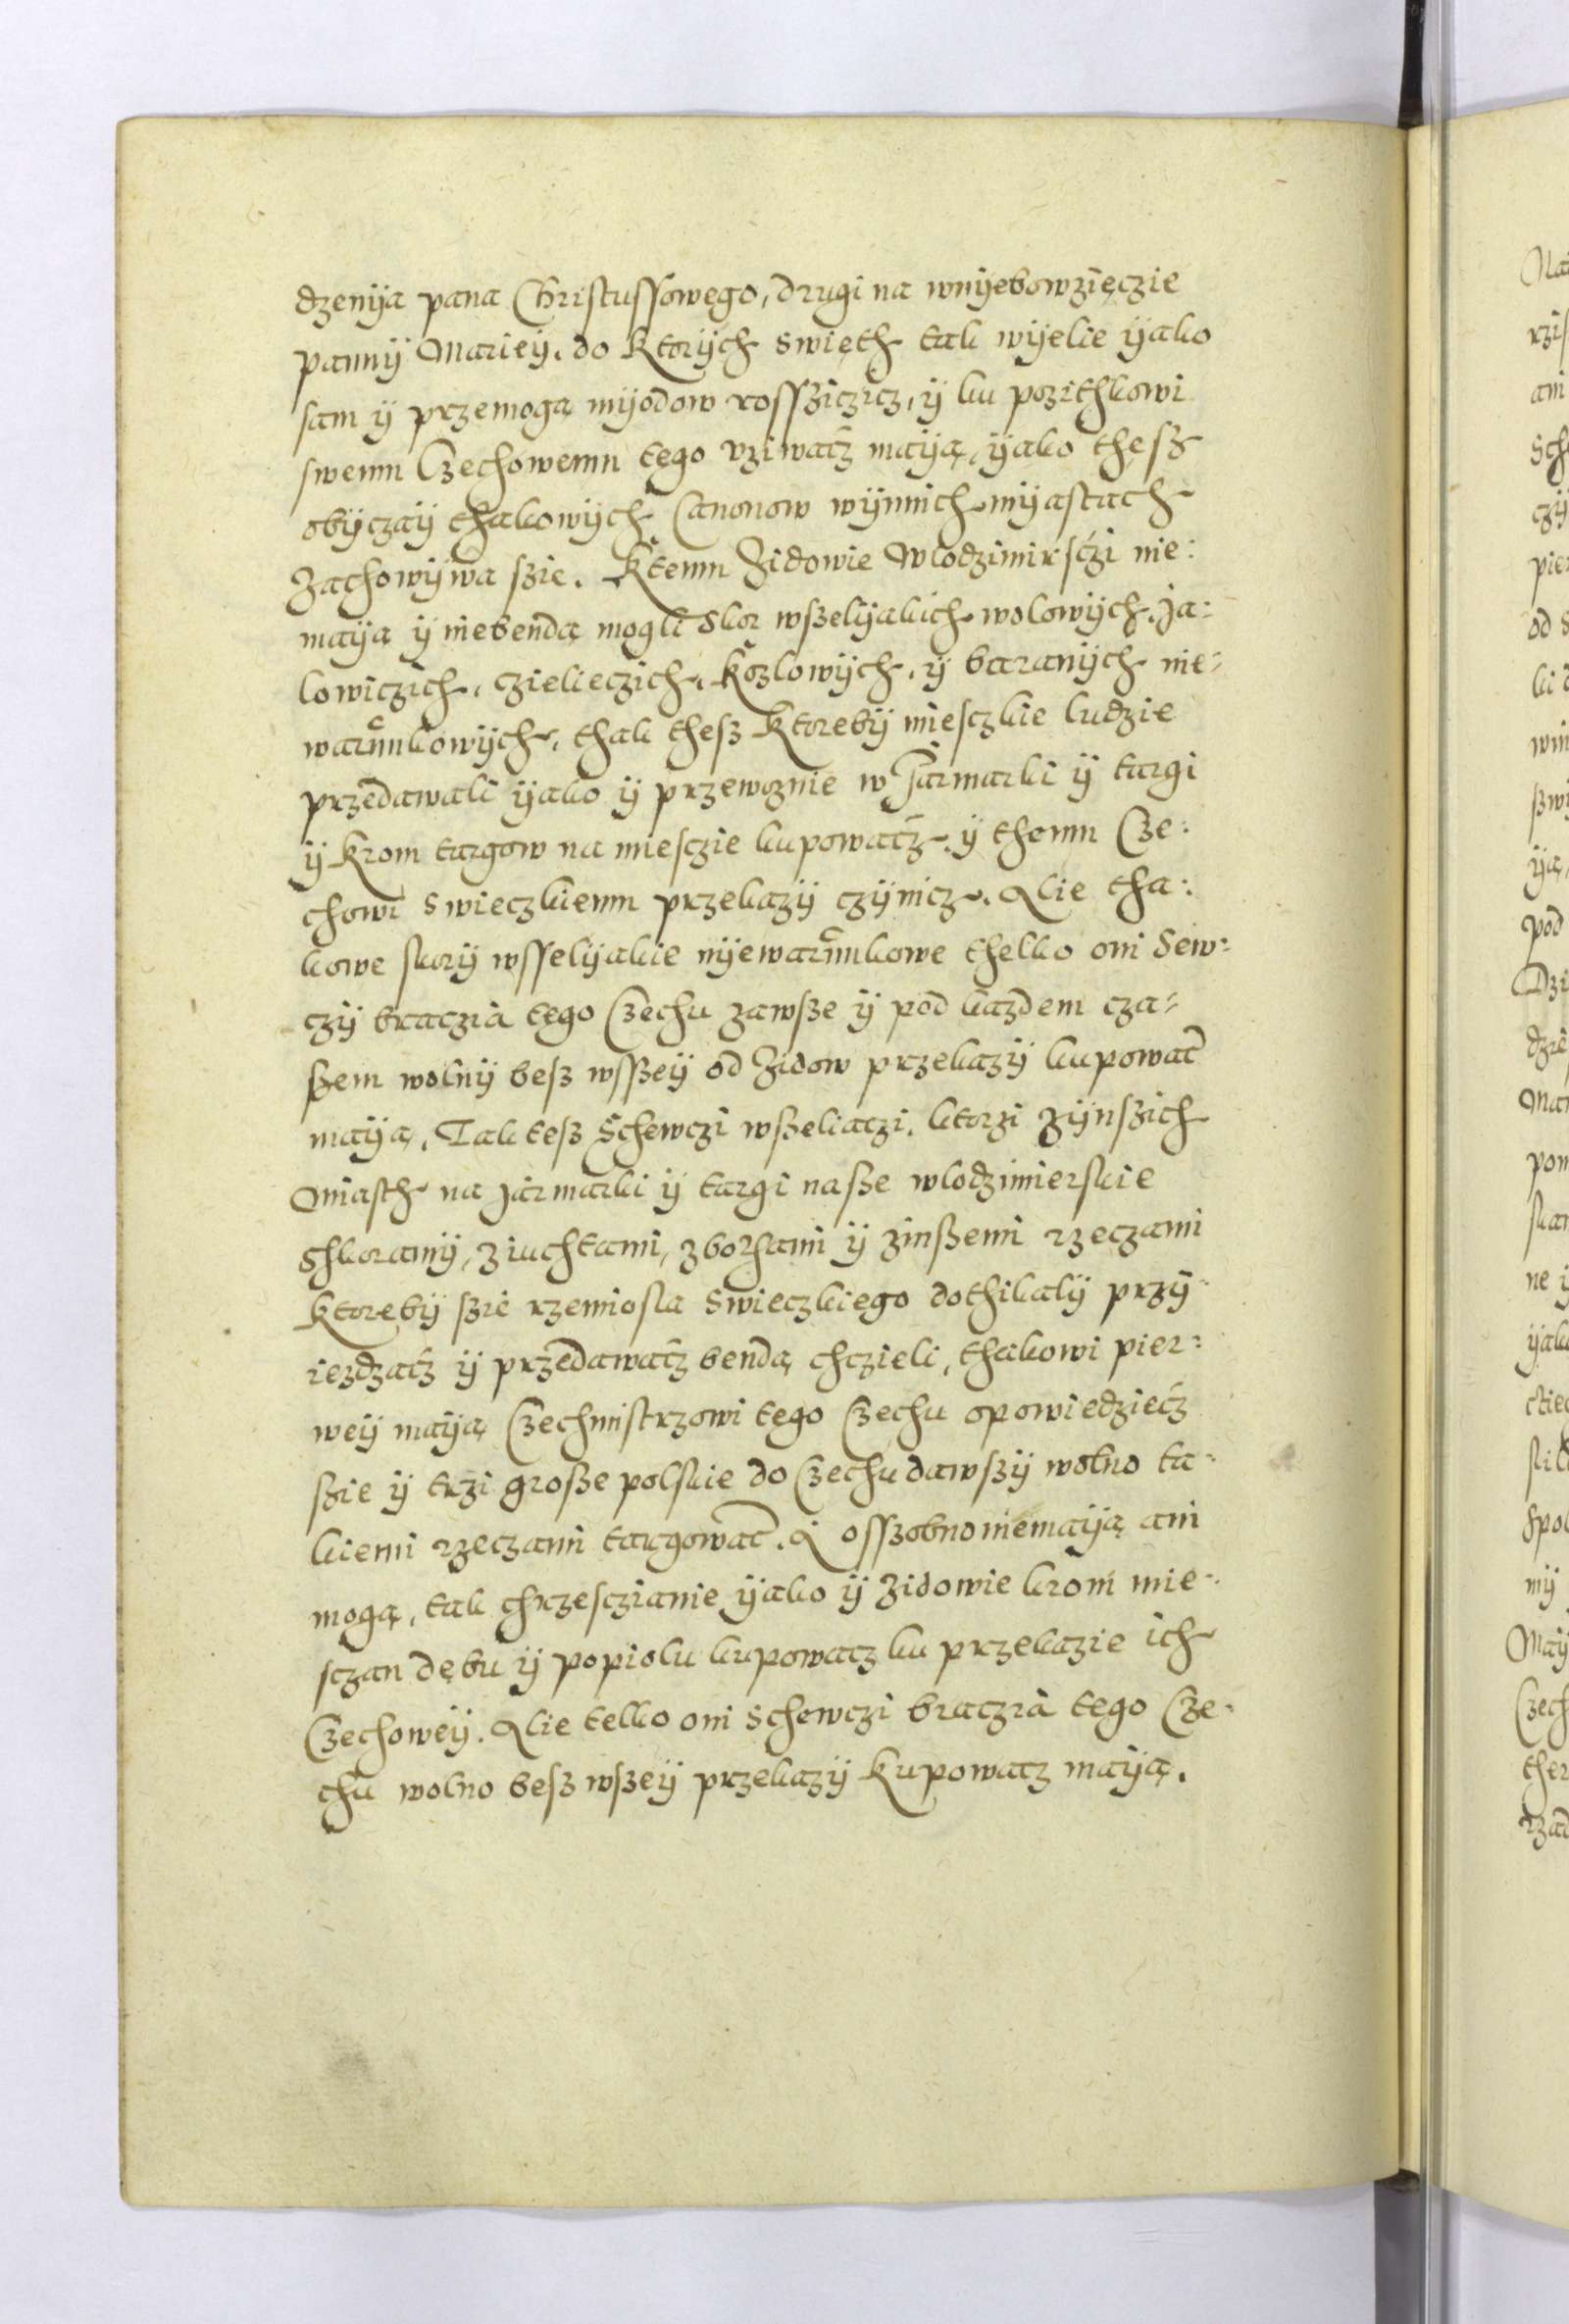 dzenÿa pana Christussowego, drugi na wnÿebowzięczie
pannÿ Mariey. do Ktorÿch swięth tak wÿelie ÿako
sam ÿ przemogą mÿodow rosssziczicz, ÿ ku pozithkowi
swemu Czechowemu tego vziwacz maÿą, ÿako thesz
obÿczaÿ thakowÿch Canonow wÿnnich mÿastach
Zachowÿwa szie. Ktemu Zidowie Wlodzimirsczi nie:
maÿą ÿ niebendą mogli Skor wszelÿakich wolowÿch. Ja:
lowiczich, czielieczich, Kozlowÿch, ÿ baranÿch nie-
warunkowÿch, thak thesz Ktorebÿ miesczkie ludzie
przedawali ÿako ÿ przewoznie w Jarmarki ÿ targi
ÿ Krom targow na miesczie kupowacz. ÿ themu Cze:
chowi swieczkiemu przekazÿ czÿnicz. Alie tha:
kowe skorÿ wsselÿakie nÿewarunkowe thelko oni Sew:
czÿ braczia tego Czechu zawsze ÿ pod kazdem cza-
szem wolnÿ besz wsszeÿ od Zidow przekazÿ kupowac
maÿą. Tak tesz Schewczi wszeliaczi. ktorzi zÿnszich
Miasth na jarmarki ÿ targi nasze wlodzimierskie
Skoramÿ, ziuchtami, zborhami ÿ zinszemi rzeczami
Ktorebÿ szie rzemiosla swieczkiego dothikalÿ przÿ-
iezdzacz ÿ przedawacz bendą chczieli, thakowi pier:
weÿ maÿą Czechmistrzowi tego Czechu opowiedziecz
szie ÿ trzi grosze polskie do Czechu dawszÿ wolno ta-
kiemi rzeczami targowac. A osszobno niemaÿą ani
mogą, tak chrzesczianie ÿako ÿ Zidowie krom mie-
sczan dębu ÿ popiolu kupowacz ku przekazie ich
Czechoweÿ. Alie telko oni Schewczi braczia tego Cze-
chu wolno besz wszeÿ przekazÿ Kupowacz maÿą.